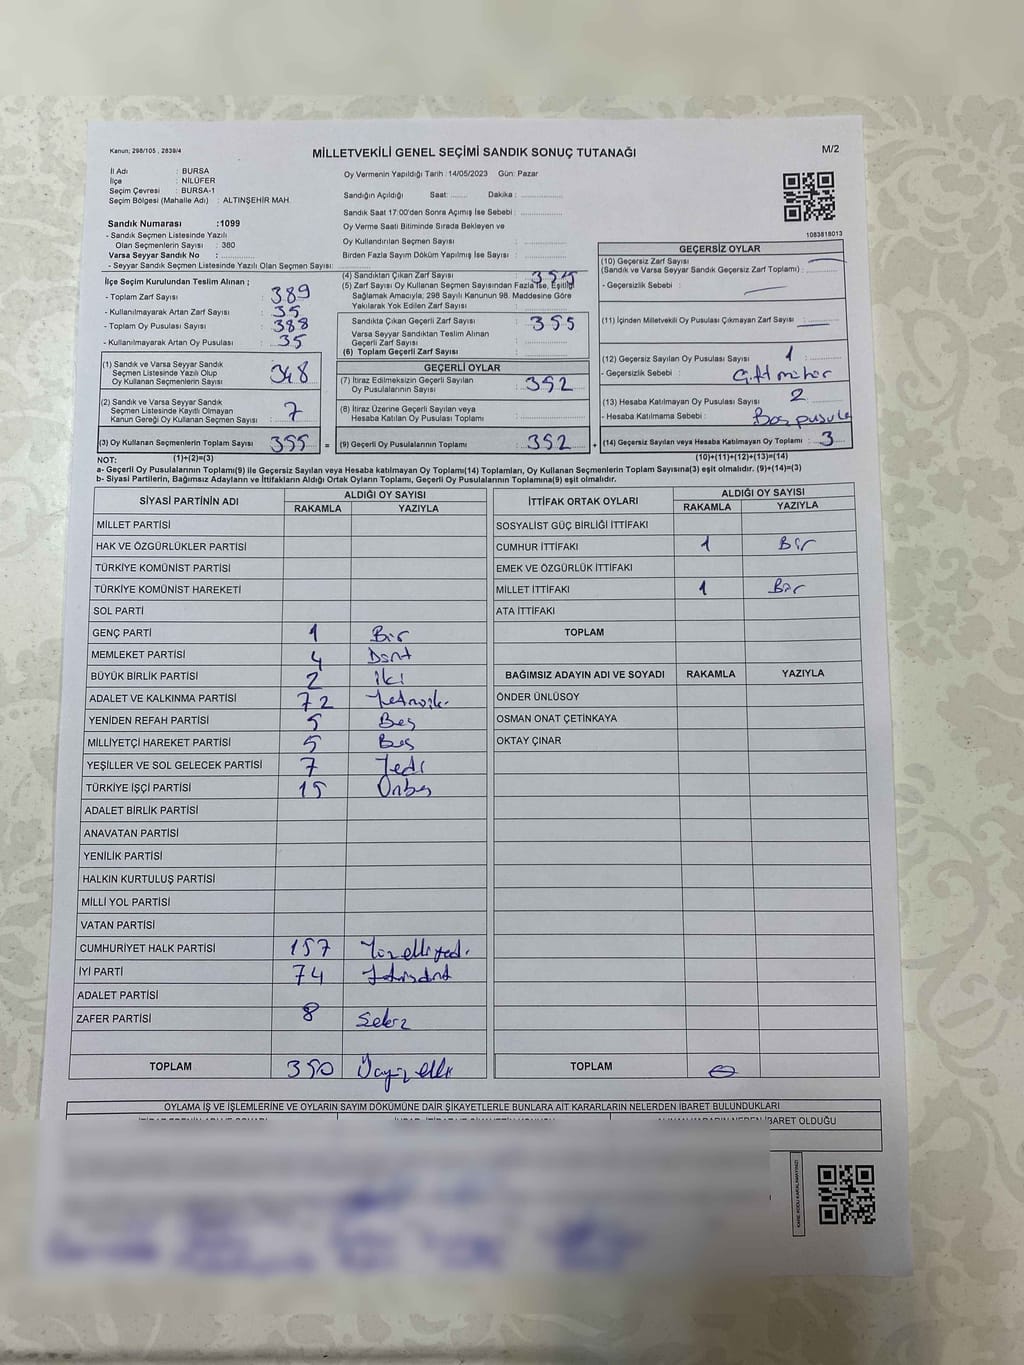 Kanun; 298/105 , 2839/4
MİLLETVEKİLİ GENEL SEÇİMİ SANDIK SONUÇ TUTANAĞI
M/2
İl Adı : BURSA
İlçe : NİLÜFER
Seçim Çevresi : BURSA-1
Seçim Bölgesi (Mahalle Adı) : ALTINŞEHİR MAH.
Sandık Numarası :1099
- Sandık Seçmen Listesinde Yazılı
Olan Seçmenlerin Sayısı : 380
Varsa Seyyar Sandık No :
- Seyyar Sandık Seçmen Listesinde Yazılı Olan Seçmen Sayısı:
Oy Vermenin Yapıldığı Tarih : 14/05/2023 Gün: Pazar
Sandığın Açıldığı Saat: ....... Dakika : ..............
Sandık Saat 17:00'den Sonra Açımış İse Sebebi : ..............
Oy Verme Saati Bitiminde Sırada Bekleyen ve
Oy Kullandırılan Seçmen Sayısı : ..............
Birden Fazla Sayım Döküm Yapılmış İse Sayısı : ..............
1083818013
İlçe Seçim Kurulundan Teslim Alınan ;
- Toplam Zarf Sayısı : 389
- Kullanılmayarak Artan Zarf Sayısı : 35
- Toplam Oy Pusulası Sayısı : 388
- Kullanılmayarak Artan Oy Pusulası : 35
(1) Sandık ve Varsa Seyyar Sandık
Seçmen Listesinde Yazılı Olup
Oy Kullanan Seçmenlerin Sayısı : 348
(2) Sandık ve Varsa Seyyar Sandık
Seçmen Listesinde Kaydı Olmayan
Kanun Gereği Oy Kullanan Seçmen Sayısı : 7
(3) Oy Kullanan Seçmenlerin Toplam Sayısı : 355 =
(4) Sandıktan Çıkan Zarf Sayısı : 355
(5) Zarf Sayısı Oy Kullanan Seçmen Sayısından Fazla İse, Eşitliği
Sağlamak Amacıyla; 298 Sayılı Kanunun 98. Maddesine Göre
Yakılarak Yok Edilen Zarf Sayısı :
Sandıkta Çıkan Geçerli Zarf Sayısı : 355
Varsa Seyyar Sandıktan Teslim Alınan
Geçerli Zarf Sayısı :
(6) Toplam Geçerli Zarf Sayısı :
GEÇERLİ OYLAR
(7) İtiraz Edilmeksizin Geçerli Sayılan
Oy Pusulalarının Sayısı : 352
(8) İtiraz Üzerine Geçerli Sayılan veya
Hesaba Katılan Oy Pusulası Toplamı :
(9) Geçerli Oy Pusulalarının Toplamı : 352 +
GEÇERSİZ OYLAR
(10) Geçersiz Zarf Sayısı
(Sandık ve Varsa Seyyar Sandık Geçersiz Zarf Toplamı) :
- Geçersizlik Sebebi :
(11) İçinden Milletvekili Oy Pusulası Çıkmayan Zarf Sayısı :
(12) Geçersiz Sayılan Oy Pusulası Sayısı : 1
- Geçersizlik Sebebi :
(13) Hesaba Katılmayan Oy Pusulası Sayısı : 2
- Hesaba Katılmama Sebebi : Boş pusula
(14) Geçersiz Sayılan veya Hesaba Katılmayan Oy Toplamı : 3
NOT: (1)+(2)=(3) (10)+(11)+(12)+(13)=(14)
a- Geçerli Oy Pusulalarının Toplamı(9) ile Geçersiz Sayılan veya Hesaba katılmayan Oy Toplamı(14) Toplamları, Oy Kullanan Seçmenlerin Toplam Sayısına(3) eşit olmalıdır. (9)+(14)=(3)
b- Siyasi Partilerin, Bağımsız Adayların ve İttifakların Aldığı Ortak Oyların Toplamı, Geçerli Oy Pusulalarının Toplamına(9) eşit olmalıdır.
SİYASİ PARTİNİN ADI ALDIĞI OY SAYISI
RAKAMLA YAZIYLA
MİLLET PARTİSİ
HAK VE ÖZGÜRLÜKLER PARTİSİ
TÜRKİYE KOMÜNİST PARTİSİ
TÜRKİYE KOMÜNİST HAREKETİ
SOL PARTİ
GENÇ PARTİ 1 Bir
MEMLEKET PARTİSİ 4 Dört
BÜYÜK BİRLİK PARTİSİ 2 iki
ADALET VE KALKINMA PARTİSİ 72
YENİDEN REFAH PARTİSİ 5 Beş
MİLLİYETÇİ HAREKET PARTİSİ 5 Beş
YEŞİLLER VE SOL GELECEK PARTİSİ 7 Yedi
TÜRKİYE İŞÇİ PARTİSİ 15 Onbeş
ADALET BİRLİK PARTİSİ
ANAVATAN PARTİSİ
YENİLİK PARTİSİ
HALKIN KURTULUŞ PARTİSİ
MİLLİ YOL PARTİSİ
VATAN PARTİSİ
CUMHURİYET HALK PARTİSİ 157
İYİ PARTİ 74
ADALET PARTİSİ
ZAFER PARTİSİ 8 Sekiz
TOPLAM 350
İTTİFAK ORTAK OYLARI ALDIĞI OY SAYISI
RAKAMLA YAZIYLA
SOSYALİST GÜÇ BİRLİĞİ İTTİFAKI
CUMHUR İTTİFAKI 1 Bir
EMEK VE ÖZGÜRLÜK İTTİFAKI
MİLLET İTTİFAKI 1 Bir
ATA İTTİFAKI
TOPLAM
BAĞIMSIZ ADAYIN ADI VE SOYADI RAKAMLA YAZIYLA
ÖNDER ÜNLÜSOY
OSMAN ONAT ÇETİNKAYA
OKTAY ÇINAR
TOPLAM
OYLAMA İŞ VE İŞLEMLERİNE VE OYLARIN SAYIM DÖKÜMÜNE DAİR ŞİKAYETLERLE BUNLARA AİT KARARLARIN NELERDEN İBARET BULUNDUKLARI